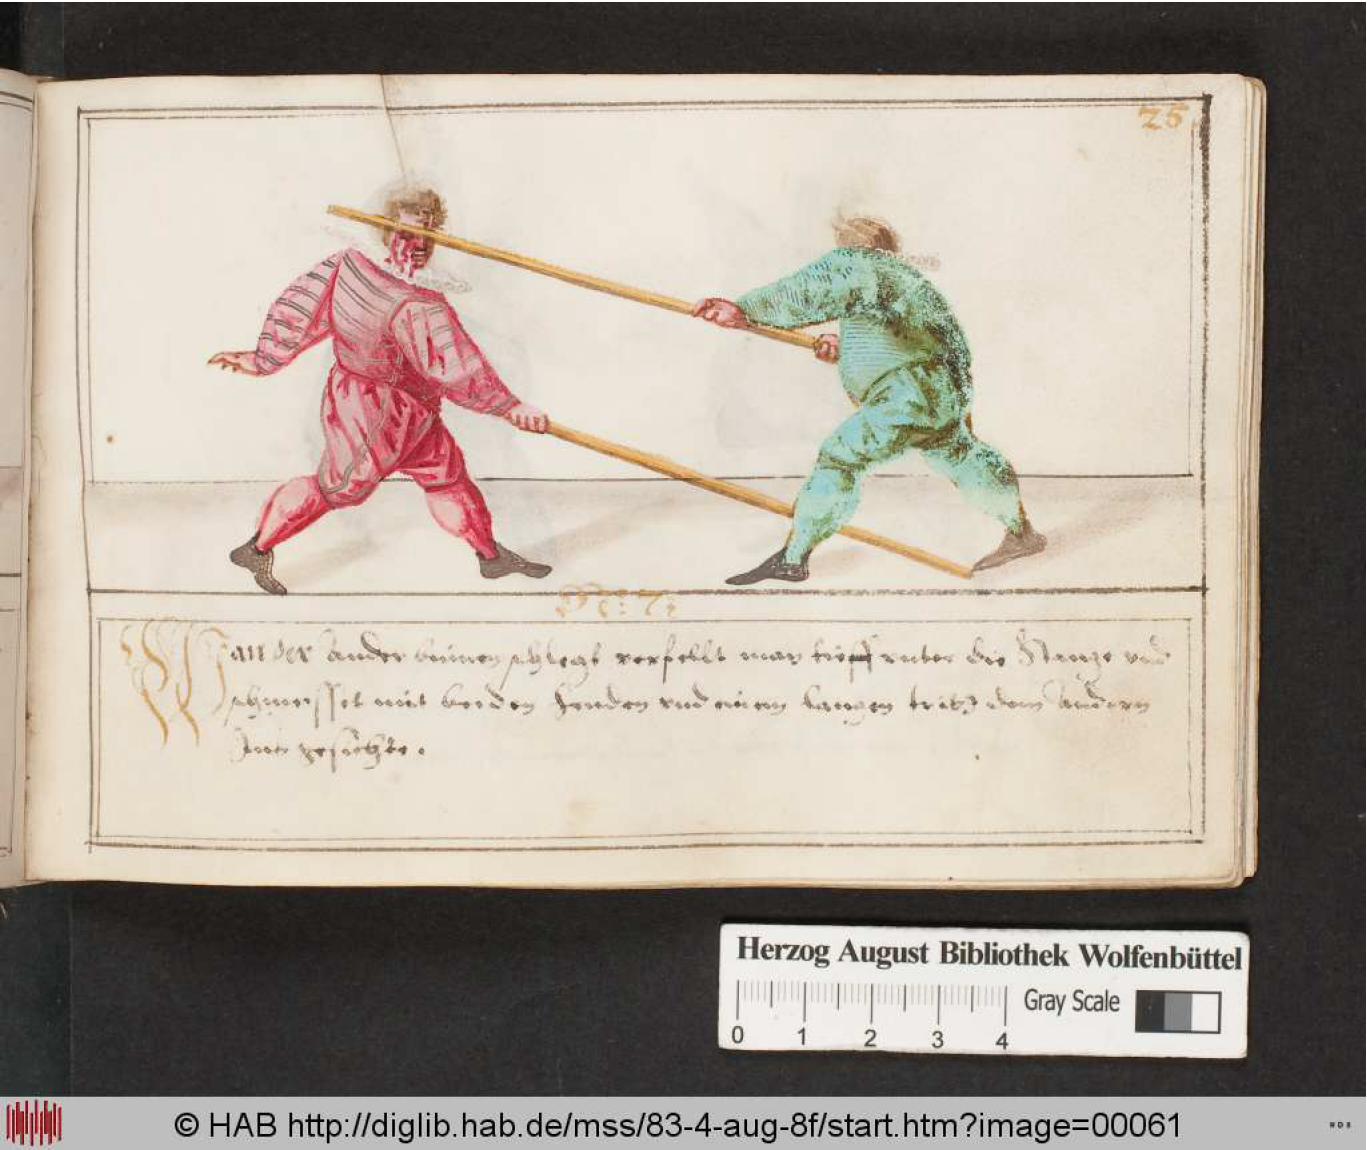 25
Wan der ander binnen schlegt verfellt man tieff unter die Stange vnd
schmeisset mit beiden henden vnd einem langen tritt dem andern
Ins gesichte.
Herzog August Bibliothek Wolfenbüttel
Gray Scale
0 1 2 3 4
© HAB http://diglib.hab.de/mss/83-4-aug-8f/start.htm?image=00061